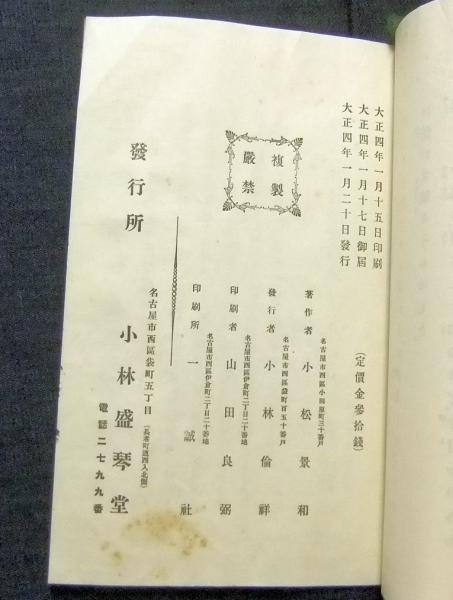 大正四年一月十五日印刷
大正四年一月十七日御届
大正四年一月二十日發行
(定價金參拾錢)
複製
嚴禁
名古屋市西區小田原町三十番戶
著作者 小松景和
名古屋市西區袋町百五十番戶
發行者 小林倫祥
名古屋市西區伊倉町二丁目二十番地
印刷者 山田良弼
名古屋市西區伊倉町二丁目二十番地
印刷所 一誠社
發行所
名古屋市西區袋町五丁目(長者町西入北側)
小林盛琴堂
電話二七九九番